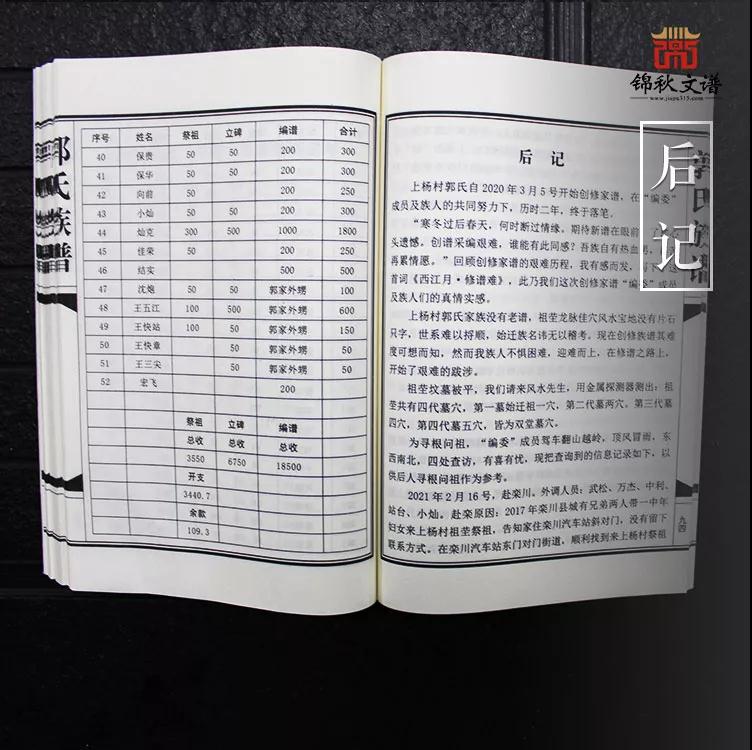 锦秋文谱
www.jiapu315.com
后记
氏族谱
序号 姓名 祭祖 立碑 编谱 合计
40 保贵 50 50 200 300
41 保华 50 50 200 300
42 向前 50 200 250
43 小灿 50 50 200 300
44 灿克 300 500 1000 1800
45 佳荣 50 200 250
46 结实 500 500
47 沈炮 50 50 郭家外甥 100
48 王五江 100 500 郭家外甥 600
49 王快站 100 50 郭家外甥 150
50 王快章 50 郭家外甥 50
51 王三尖 50 郭家外甥 50
52 宏飞 200
祭祖 立碑 编谱
总收 总收 总收
3550 6750 18500
开支
3440.7
余款
109.3
后记
上杨村郭氏自2020年3月5号开始创修家谱，在“编委”
成员及族人的共同努力下，历时二年，终于落笔。
“寒冬过后春天，何时断过情缘。期待新谱在眼前，了
头遗憾。创谱采编艰难，谁能有此同感？吾族自有热血男，
再累情愿。”回顾创修家谱的艰难历程，我有感而发，写下
首词《西江月·修谱难》，此乃我们这次创修家谱“编委”成员
及族人们的真情实感。
上杨村郭氏家族没有老谱，祖茔龙脉佳穴风水宝地没有片石
只字，世系难以捋顺，始迁族名讳无以稽考。现在创修族谱其难
度可想而知，然而我族人不惧困难，迎难而上，在修谱之路上，
开始了艰难的跋涉。
祖茔坟墓被平，我们请来风水先生，用金属探测器测出：祖
茔共有四代墓穴，第一墓始迁祖一穴，第二代墓两穴。第三代墓
四穴，第四代墓五穴，皆为双堂墓穴。
为寻根问祖，“编委”成员驾车翻山越岭，顶风冒雨，东
西南北，四处查访，有喜有忧，现把查询到的信息记录如下，以
供后人寻根问祖作为参考。
2021年2月16号，赴栾川。外调人员：武松、万杰、中利、
站台、小灿。赴栾原因：2017年栾川县城有兄弟两人带一中年
妇女来上杨村祖茔祭祖，告知家住栾川汽车站斜对门，没有留下
联系方式。在栾川汽车站东门对门街道，顺利找到来上杨村祭祖
九四